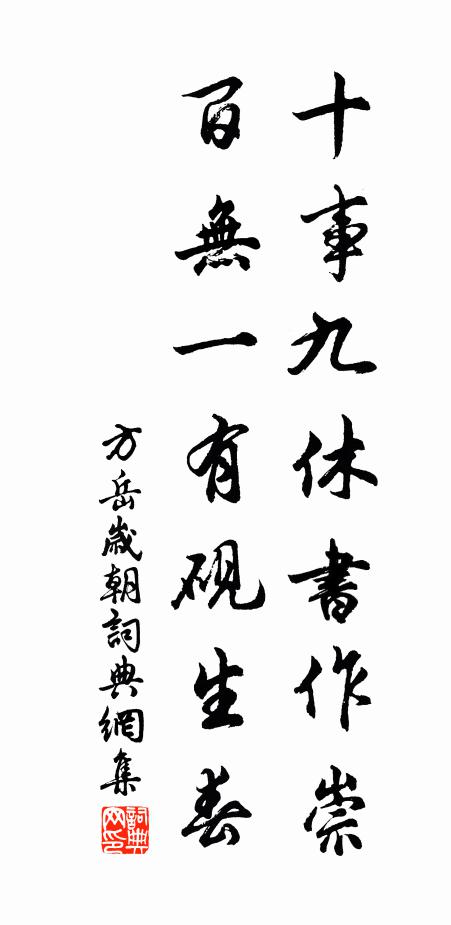 十事九休書作祟
百無一有硯生春
方岳歲朝詞典網集
詞典网印